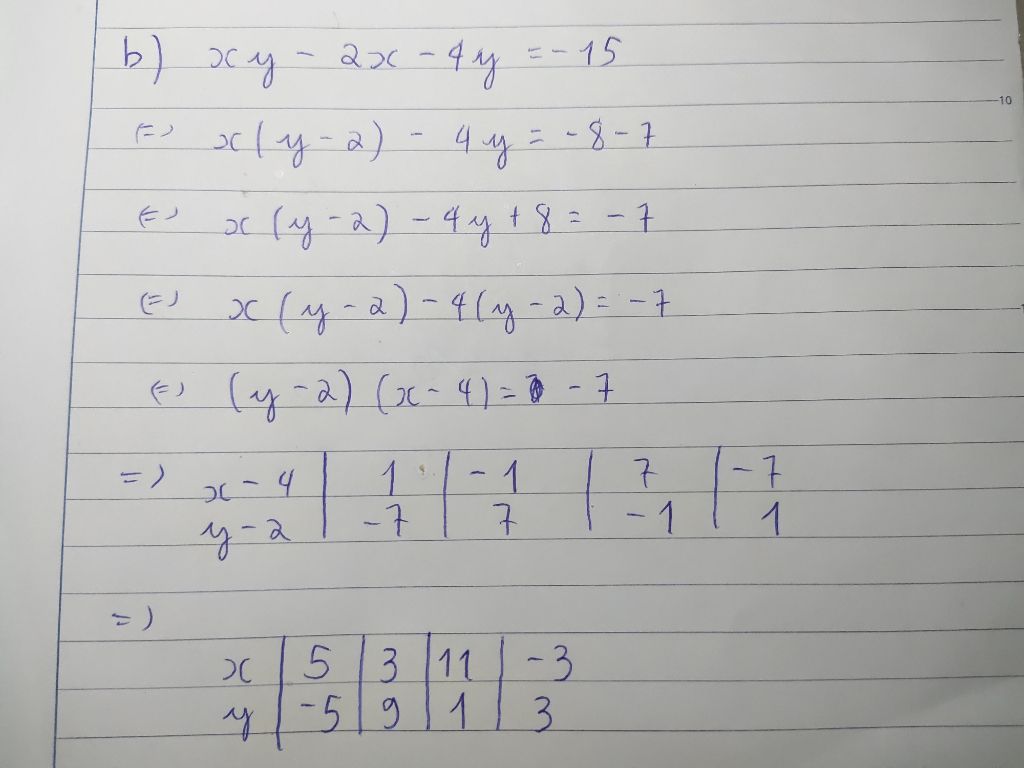 b) xy - 2x - 4y = -15
10
(=) x(y-2) - 4y = -8-7
(=) x(y-2) - 4y + 8 = -7
(=) x(y-2) - 4(y-2) = -7
(=) (y-2)(x-4) = -7
=) x-4 | 1 | -1 | 7 | -7
y-2 | -7 | 7 | -1 | 1
=)
x | 5 | 3 | 11 | -3
y | -5 | 9 | 1 | 3